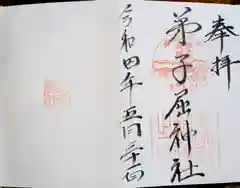 奉拝
弟子屈神社
令和四年五月三十一日